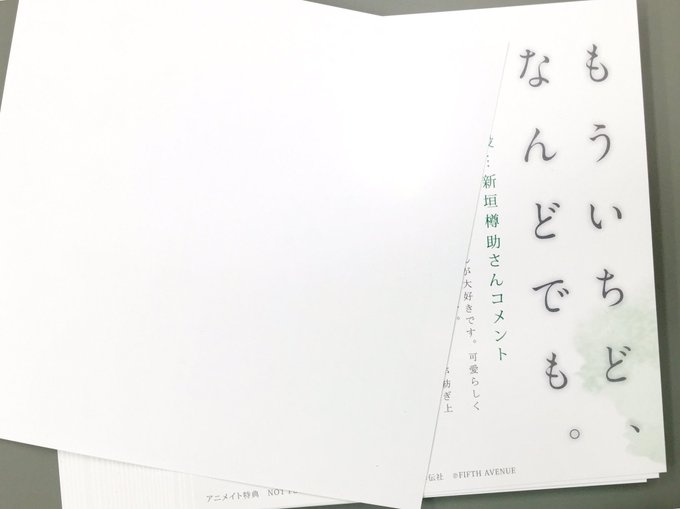 もういちど、
なんどでも。
…新垣樽助さんコメント
が大好きです。可愛らしく
紡ぎ上
アニメイト特典 NOT
伝社 ©FIFTH AVENUE